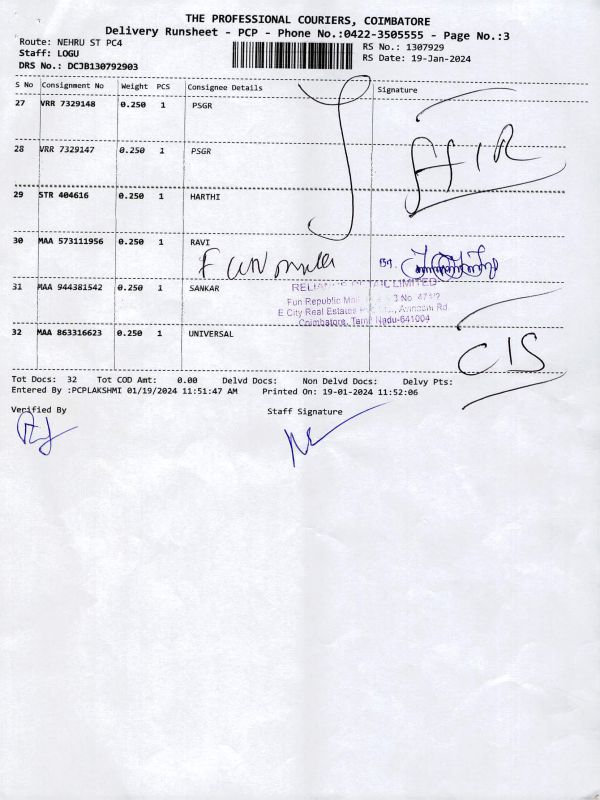 THE PROFESSIONAL COURIERS, COIMBATORE
Delivery Runsheet - PCP - Phone No.:0422-3505555 - Page No.:3
Route: NEHRU ST PC4
Staff: LOGU
DRS No.: DCJB130792903
RS No.: 1307929
RS Date: 19-Jan-2024
S No Consignment No Weight PCS Consignee Details Signature
27 VRR 7329148 0.250 1 PSGR
28 VRR 7329147 0.250 1 PSGR
29 STR 404616 0.250 1 HARTHI
30 MAA 573111956 0.250 1 RAVI
31 MAA 944381542 0.250 1 SANKAR
RETAIL LIMITED
Fun Republic
E City Real Estates
Coimbatore, Tamil Nadu-641004
32 MAA 863316623 0.250 1 UNIVERSAL
CIS
Tot Docs: 32 Tot COD Amt: 0.00 Delvd Docs: Non Delvd Docs: Delvy Pts:
Entered By :PCPLAKSHMI 01/19/2024 11:51:47 AM Printed On: 19-01-2024 11:52:06
Verified By Staff Signature